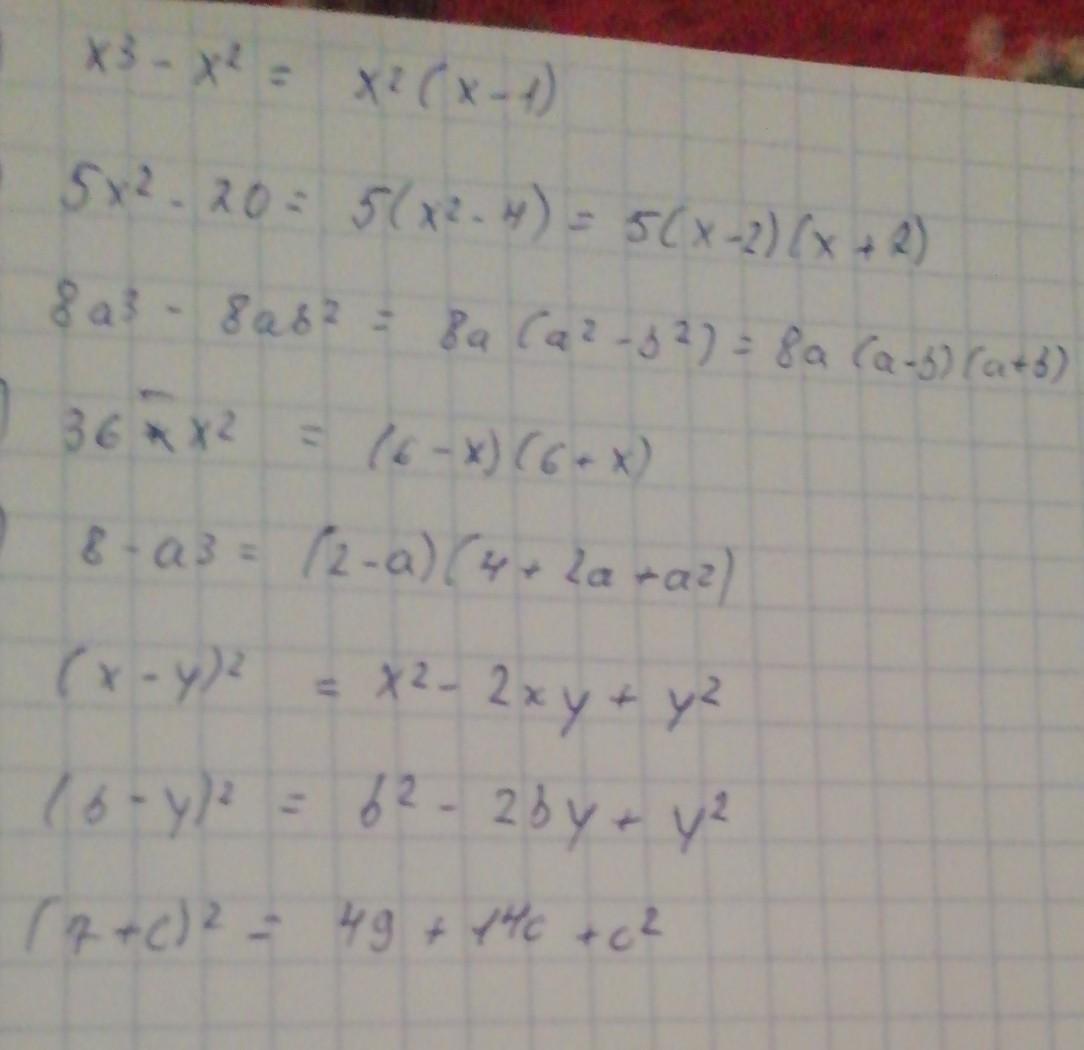 x3 - x² = x²(x-1)
5x² - 20 = 5(x² - 4) = 5(x-2)(x+2)
8a3 - 8ab² = 8a(a² - b²) = 8a(a-b)(a+b)
36 - x² = (6-x)(6+x)
8 - a3 = (2-a)(4+2a+a2)
(x-y)² = x² - 2xy + y²
(b-y)² = b² - 2by + y²
(7+c)² = 49 + 14c + c²